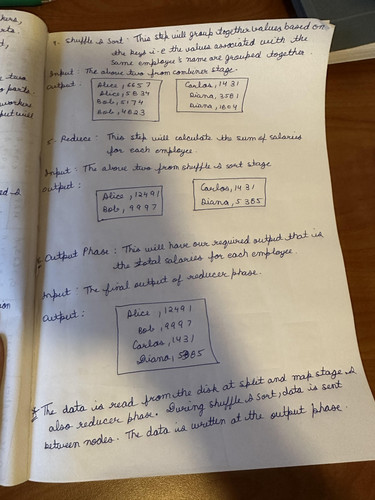 4. Shuffle & Sort : This step will group together values based on
the keys i.e the values associated with the
same employee's name are grouped together.
Input : The above two from combiner stage.
Output :
Alice, 6657
Alice, 5834
Bob, 5174
Bob, 4823
Carlos, 1431
Diana, 3581
Diana, 1804
5. Reduce : This step will calculate the sum of salaries
for each employee.
Input : The above two from shuffle & sort stage
Output :
Alice, 12491
Bob, 9997
Carlos, 1431
Diana, 5385
Output Phase : This will have our required output that is
the total salaries for each employee.
Input : The final output of reducer phase.
Output :
Alice, 12491
Bob, 9997
Carlos, 1431
Diana, 5385
* The data is read from the disk at split and map stage &
also reducer phase. During shuffle & sort, data is sent
between nodes. The data is written at the output phase.